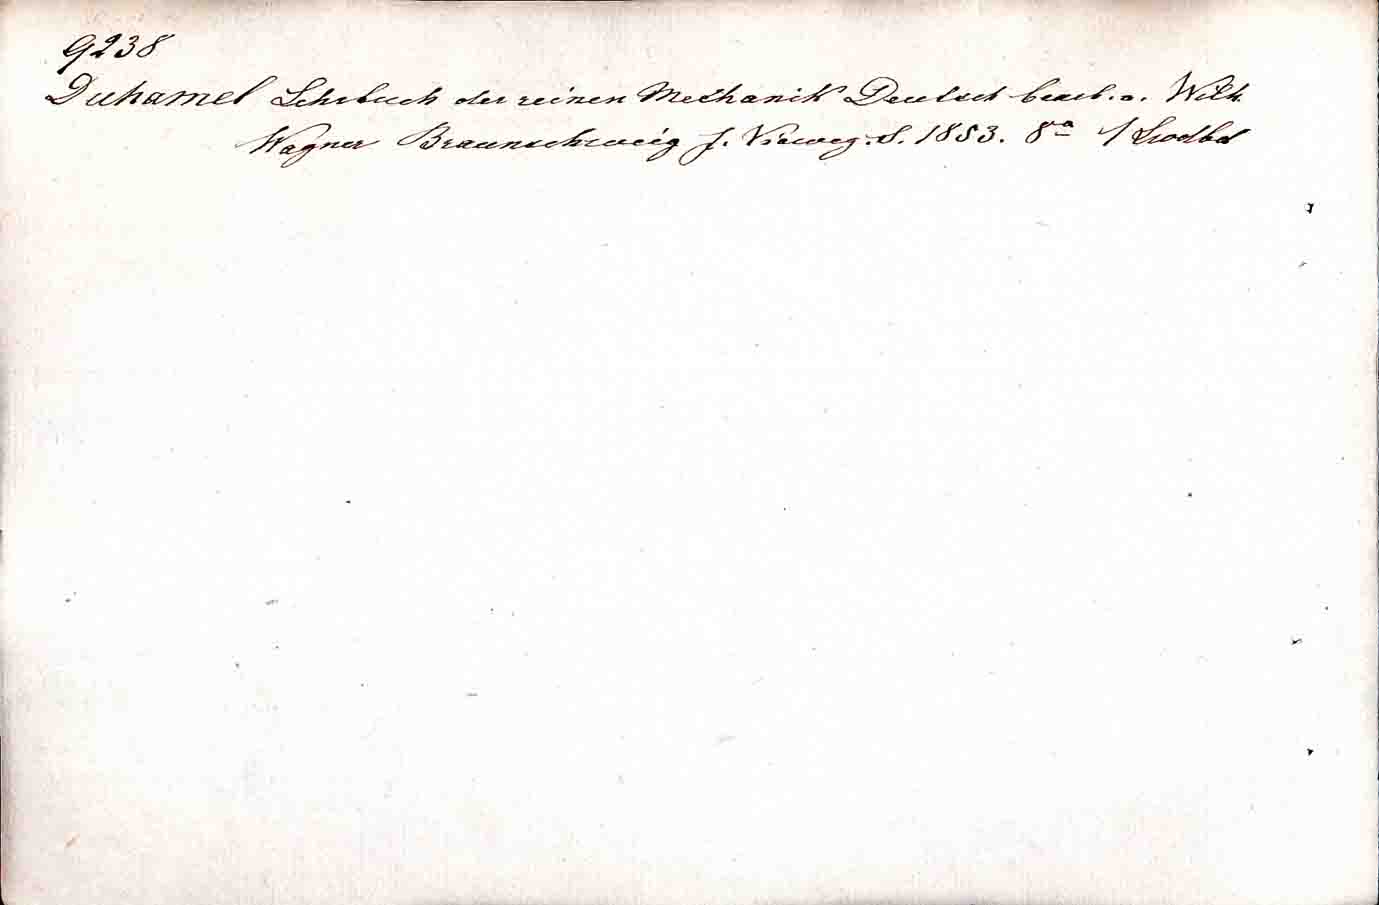 9238
Duhamel Lehrbuch der reinen Mechanik Deutsch bearb. v. Wilh.
Wagner Braunschweig f. Vieweg. S. 1853. 8º 1